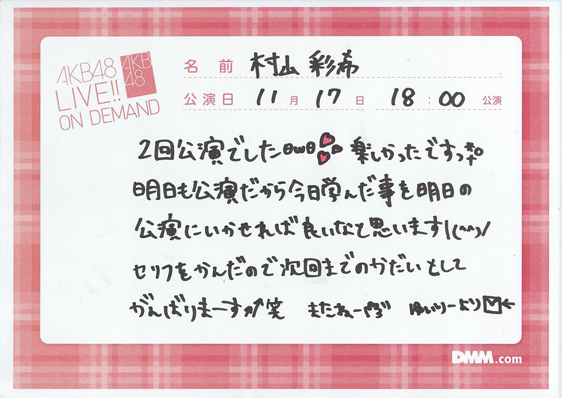 AKB48
LIVE!!
ON DEMAND
AKB
48
名前 村山彩希
公演日 11月17日 18:00 公演
2回公演でした 楽しかったですっ
明日も公演だから今日学んだ事を明日の
公演にいかせれば良いなと思います!(^^)/
セリフをかんだので次回までのかだいとして
がんばりまーす 笑 またねー ゆいりーより
DMM.com